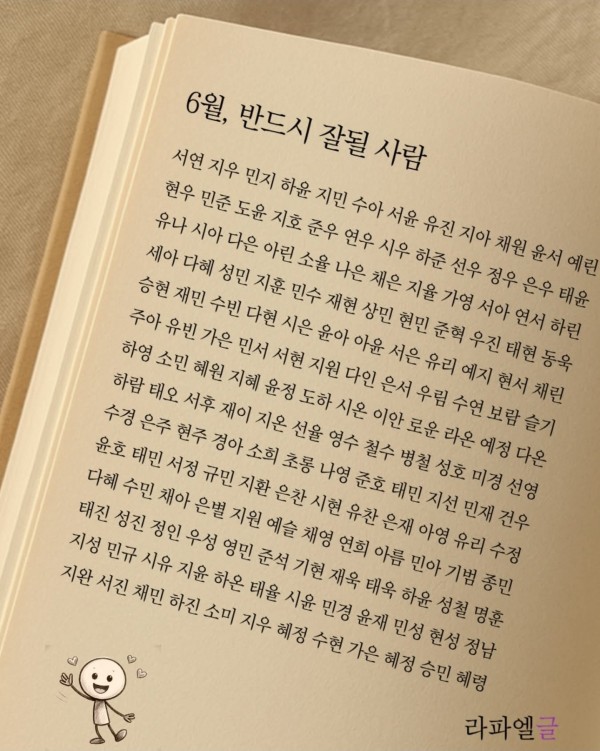 6월, 반드시 잘될 사람
서연 지우 민지 하윤 지민 수아 서윤 유진 지아 채원 윤서 예린
현우 민준 도윤 지호 준우 연우 시우 하준 선우 정우 은우 태윤
유나 시아 다은 아린 소율 나은 채은 지율 가영 서아 연서 하린
세아 다혜 성민 지훈 민수 재현 상민 현민 준혁 우진 태현 동욱
승현 재민 수빈 다현 시은 윤아 아윤 서은 유리 예지 현서 채린
주아 유빈 가은 민서 서현 지원 다인 은서 우림 수연 보람 슬기
하영 소민 혜원 지혜 윤정 도하 시온 이안 로운 라온 예정 다온
하람 태오 서후 재이 지온 선율 영수 철수 병철 성호 미경 선영
수경 은주 현주 경아 소희 초롱 나영 준호 태민 지선 민재 건우
윤호 태민 서정 규민 지환 은찬 시현 유찬 은재 아영 유리 수정
다혜 수민 채아 은별 지원 예슬 채영 연희 아름 민아 기범 종민
태진 성진 정인 우성 영민 준석 기현 재욱 태욱 하윤 성철 명훈
지성 민규 시유 지윤 하온 태율 시윤 민경 윤재 민성 현성 정남
지완 서진 채민 하진 소미 지우 혜정 수현 가은 혜정 승민 혜령
라파엘글